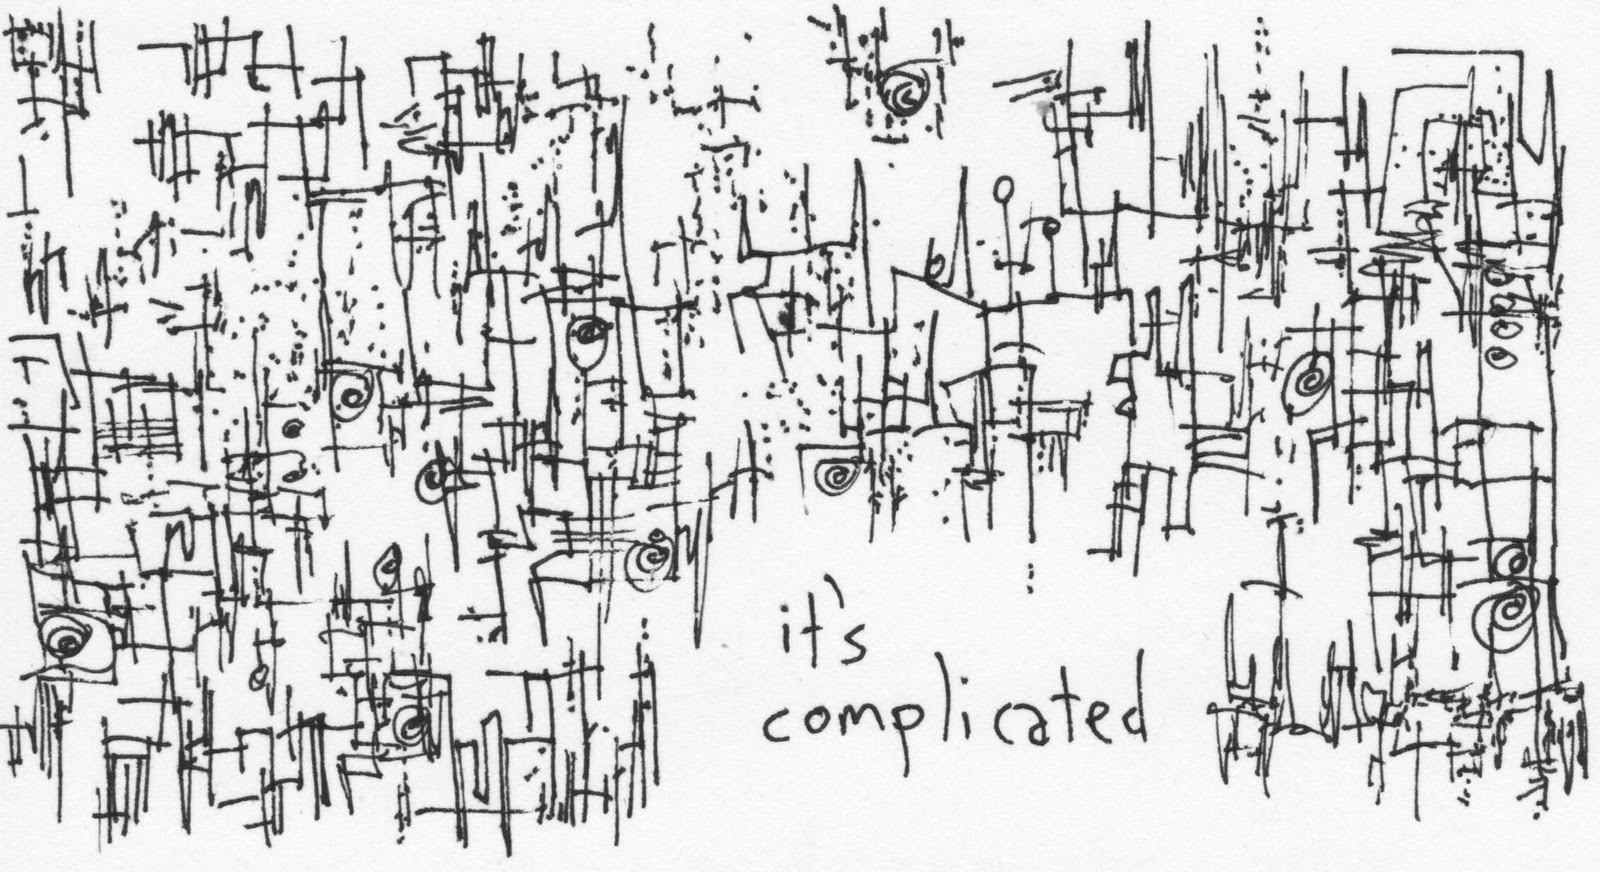 it's
complicated